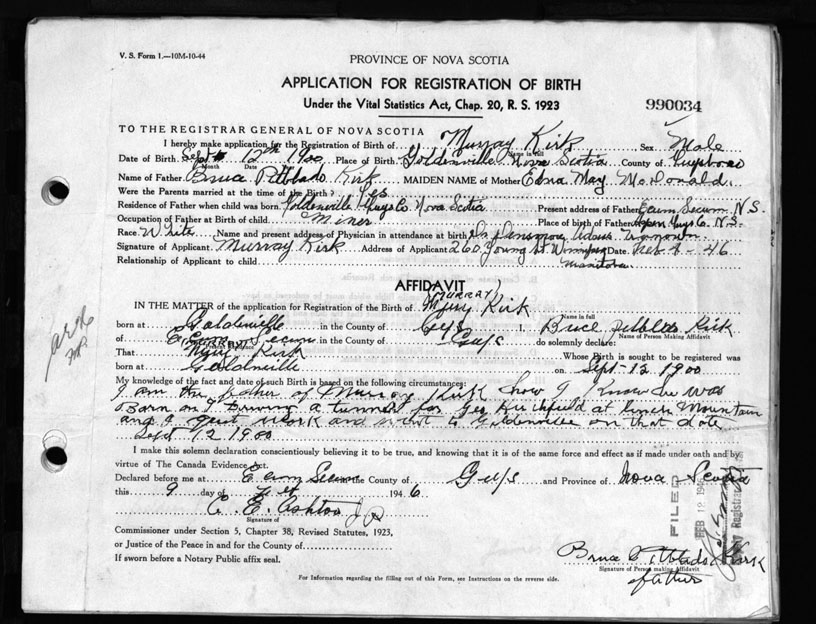 V. S. Form 1.—10M-10-44
PROVINCE OF NOVA SCOTIA
APPLICATION FOR REGISTRATION OF BIRTH
Under the Vital Statistics Act, Chap. 20, R. S. 1923
990034
TO THE REGISTRAR GENERAL OF NOVA SCOTIA
I hereby make application for the Registration of Birth of Murray Kirk Sex Male
Name in full
Date of Birth Sept 12th 1900 Place of Birth Goldenville Nova Scotia County of Guysboro
Month Date
Name of Father Bruce Pittblado Kirk MAIDEN NAME of Mother Edna May McDonald.
Were the Parents married at the time of the Birth? Yes
Residence of Father when child was born Goldenville Guys Co. Nova Scotia Present address of Father Ecum Secum N.S.
Occupation of Father at Birth of child Miner Place of birth of Father Guys Co. N.S.
Race White Name and present address of Physician in attendance at birth Dr Densmore
Signature of Applicant Murray Kirk Address of Applicant 260 Young St Winnipeg Date Feb 1 - 46
Manitoba
Relationship of Applicant to child
AFFIDAVIT
(MURRAY)
IN THE MATTER of the application for Registration of the Birth of Kirk
Name in full
born at Goldenville in the County of Guys I, Bruce Pittblado Kirk
Name of Person Making Affidavit
of Ecum Secum in the County of Guys do solemnly declare:
Present Residence
That Kirk Whose Birth is sought to be registered was
born at Goldenville on Sept - 12 1900
My knowledge of the fact and date of such Birth is based on the following circumstances:
I am the father of Murray Kirk how I know he was
Born on I Driving a tunnel for Geo Hirschfield at Mountain
and I quit work and went to Goldenville on that date
Sept 12 1900
I make this solemn declaration conscientiously believing it to be true, and knowing that it is of the same force and effect as if made under oath and by
virtue of The Canada Evidence Act.
Declared before me at Ecum Secum the County of Guys and Province of Nova Scotia
this 9 day of Feb 1946
C. E. Ashton J P
Signature of
Commissioner under Section 5, Chapter 38, Revised Statutes, 1923,
or Justice of the Peace in and for the County of
If sworn before a Notary Public affix seal.
FILED
FEB 12 194
Registrar
Bruce Pittblado Kirk
Signature of Person making Affidavit
father
For Information regarding the filling out of this Form, see Instructions on the reverse side.